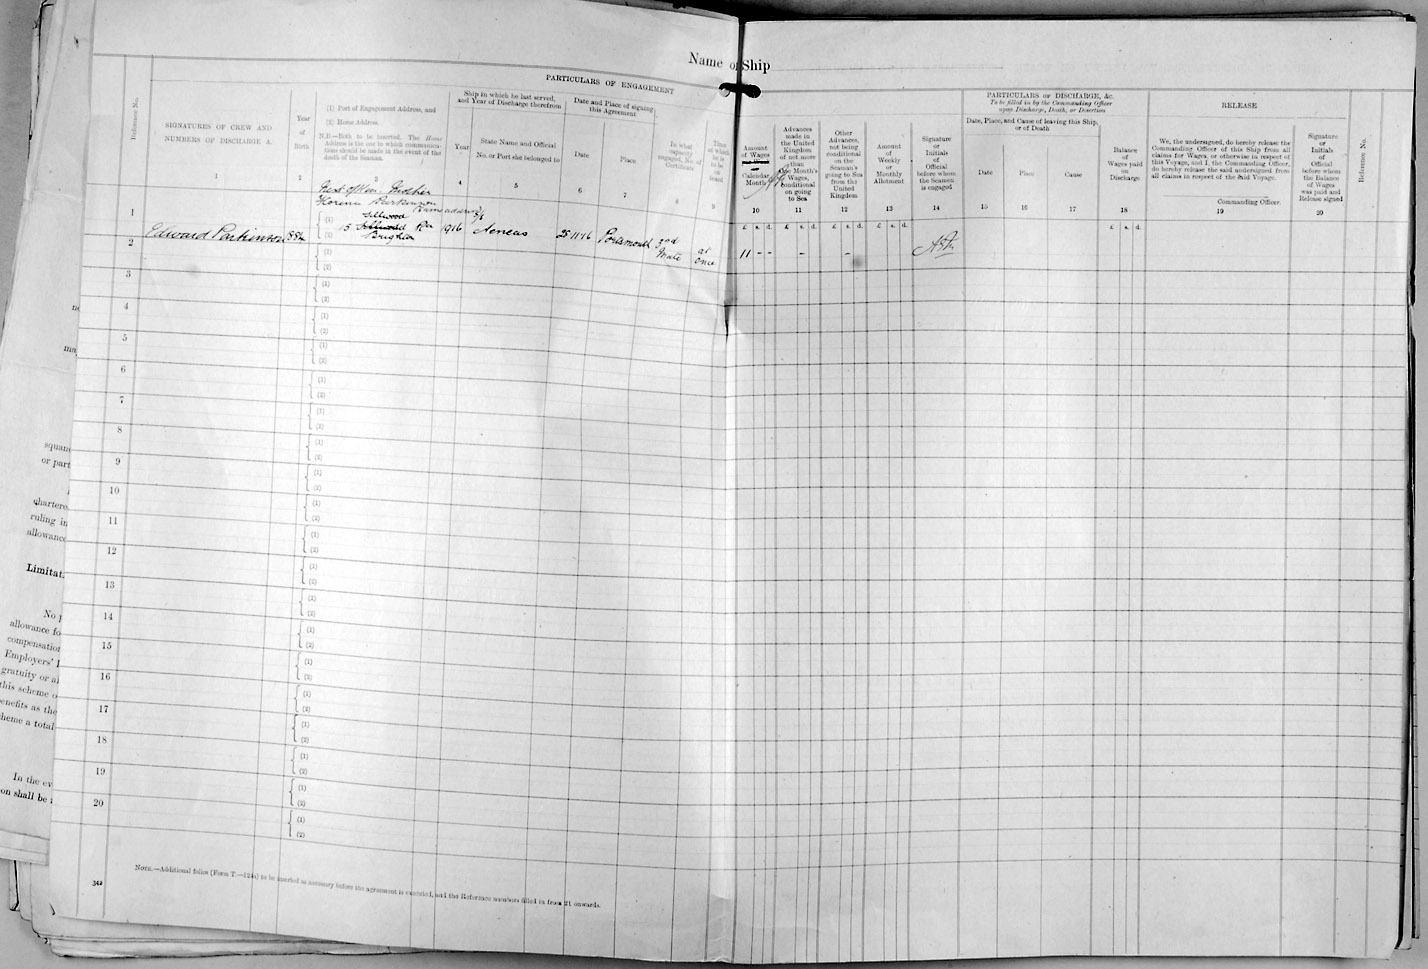 Name of Ship
PARTICULARS OF ENGAGEMENT
Reference No.
SIGNATURES OF CREW AND
NUMBERS OF DISCHARGE A.
1
Year
of
Birth
2
(1) Port of Engagement Address, and
(2) Home Address.
N.B.—Both to be inserted. The Home
Address is the one to which communica-
tions should be made in the event of the
death of the Seaman.
3
Ship in which he last served,
and Year of Discharge therefrom
Year
4
State Name and Official
No. or Port she belonged to
5
Date and Place of signing
this Agreement
Date
6
Place
7
In what
capacity
engaged,
No. of
Certificate
8
Time
at which
he is
to be
on
board
9
Amount
of Wages
Calendar
Month
10
Advances
made in
the United
Kingdom
of not more
than
One Month's
Wages,
conditional
on going
to Sea
11
Other
Advances,
not being
conditional
on the
Seaman's
going to Sea
from the
United
Kingdom
12
Amount
of
Weekly
or
Monthly
Allotment
13
Signature
or
Initials
of
Official
before whom
the Seaman
is engaged
14
PARTICULARS OF DISCHARGE, &c.
To be filled in by the Commanding Officer
upon Discharge, Death, or Desertion
Date, Place, and Cause of leaving this Ship,
or of Death
Date
15
Place
16
Cause
17
Balance
of
Wages paid
on
Discharge
18
RELEASE
We, the undersigned, do hereby release the
Commanding Officer of this Ship from all
claims for Wages, or otherwise in respect of
this Voyage, and I, the Commanding Officer,
do hereby release the said undersigned from
all claims in respect of the said Voyage.
Commanding Officer.
19
Signature
or
Initials
of
Official
before whom
the Balance
of Wages
was paid and
Release signed
20
Reference No.
£ s. d. £ s. d. £ s. d. £ s. d. £ s. d.
Next of Kin. Mother
Florence Parkinson
Same address
1 Edward Parkinson (1) (2) 15 Rd Brighton 1916 Aeneas 25 11 16 Portsmouth 2nd Mate at once 11 - - - -
2 (1)
(2)
3 (1)
(2)
4 (1)
(2)
5 (1)
(2)
6 (1)
(2)
7 (1)
(2)
8 (1)
(2)
9 (1)
(2)
10 (1)
(2)
11 (1)
(2)
12 (1)
(2)
13 (1)
(2)
14 (1)
(2)
15 (1)
(2)
16 (1)
(2)
17 (1)
(2)
18 (1)
(2)
19 (1)
(2)
20 (1)
(2)
NOTE.—Additional folios (Form T.—124a) to be inserted as necessary before the agreement is executed, and the Reference numbers filled in from 21 onwards.
square
or part
chartere
ruling in
allowance
Limitat
No p
allowance fo
compensation
Employers' l
gratuity or al
this scheme o
enefits as the
heme a total
In the ev
on shall be